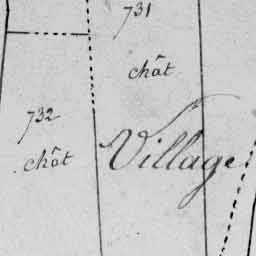 731
chât
732
chât
Village